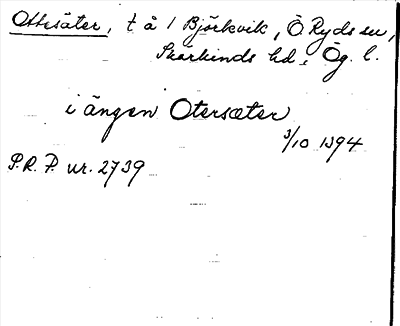 Ottesäter, t å 1 Björkvik, Ö. Ryds sn,
Skärkinds hd, Ög. l.
i ängen Otersæter
3/10 1394
P.R.P. nr. 2739